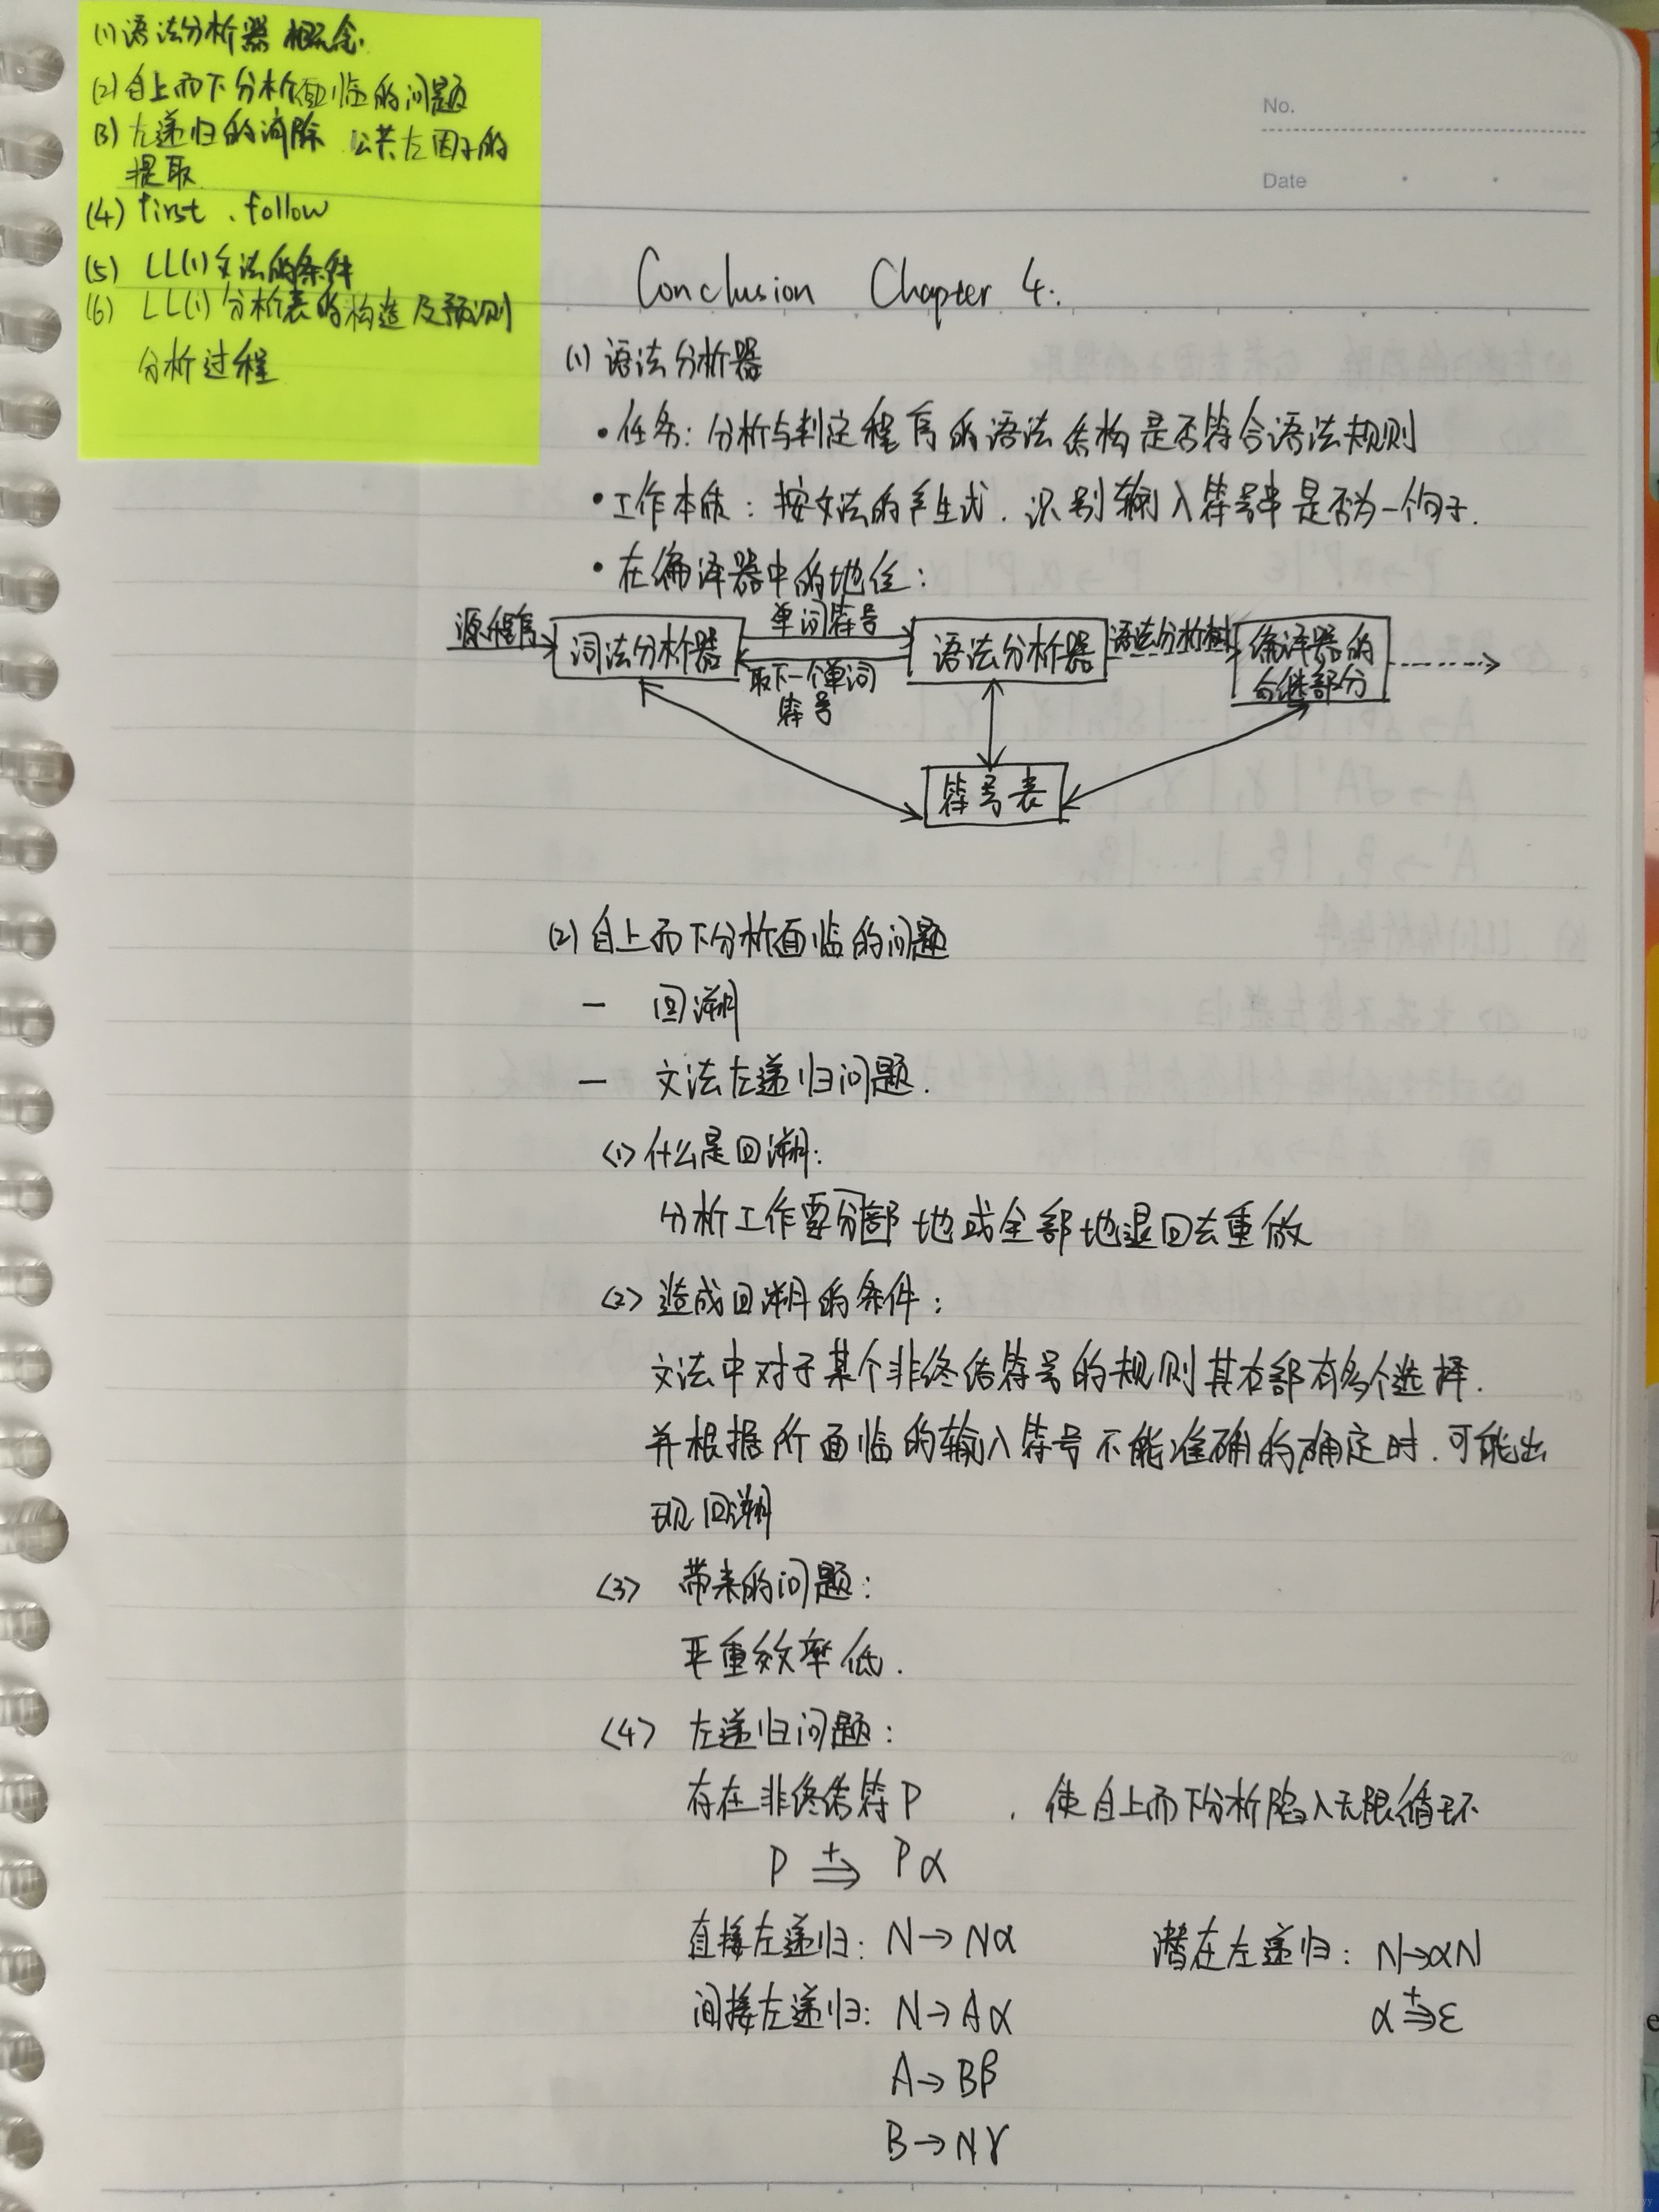 (1) 语法分析器 概念.
(2) 自上而下分析面临的问题
(3) 左递归的消除 公共左因子的
提取
(4) first 、follow
(5) LL(1)文法的条件
(6) LL(1)分析表的构造及预测
分析过程
No.
Date
Conclusion Chapter 4:
(1) 语法分析器
• 任务: 分析与判定程序的语法结构是否符合语法规则
• 工作本质: 按文法的产生式. 识别输入符号串是否为一个句子.
• 在编译器中的地位:
源程序
词法分析器
单词符号
取下一个单词
符号
语法分析器
语法分析树
编译器的
后继部分
符号表
(2) 自上而下分析面临的问题
— 回溯
— 文法左递归问题.
<1> 什么是回溯:
分析工作要部分地或全部地退回去重做
<2> 造成回溯的条件:
文法中对于某个非终结符号的规则其右部有多个选择.
并根据所面临的输入符号不能准确的确定时. 可能出
现回溯
<3> 带来的问题:
严重效率低.
<4> 左递归问题:
存在非终结符P , 使自上而下分析陷入无限循环
P ⇒+ Pα
直接左递归: N→Nα
潜在左递归: N→αN
α ⇒+ ε
间接左递归: N→Aα
A→Bβ
B→Nγ